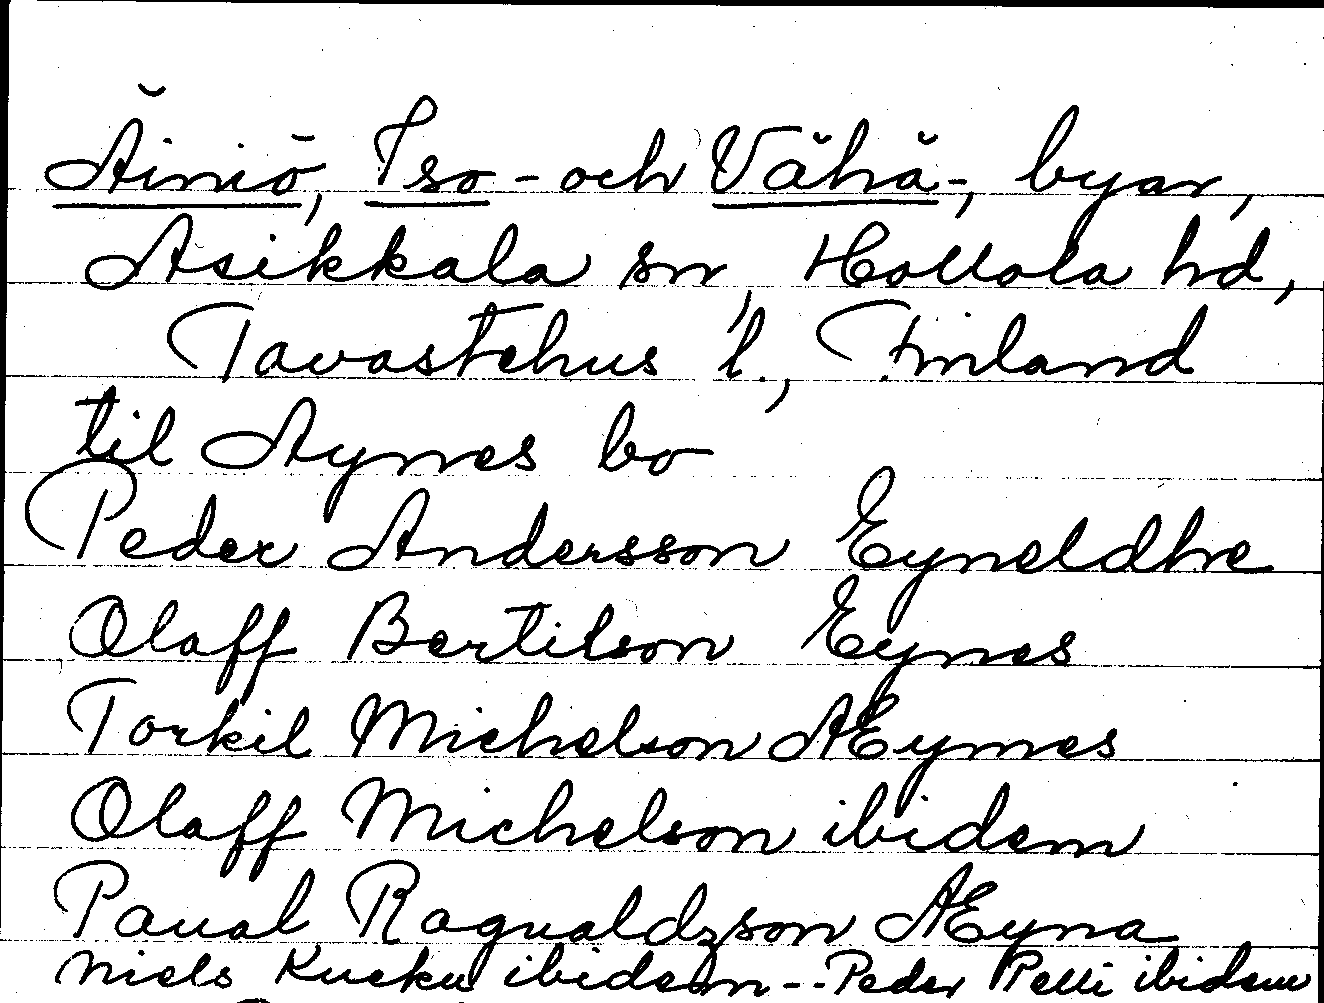 Äiniö, Iso- och Vähä-, byar,
Asikkala sn, Hollola hd,
Tavastehus l., Finland
til Aynes bo
Peder Andersson Eyneldhe
Olaff Bertilson Eynes
Torkil Michelson Æynes
Olaff Michelson ibidem
Paual Ragualdzson Æyna
Niels Kucku ibidem -- Peder Pelli ibidem